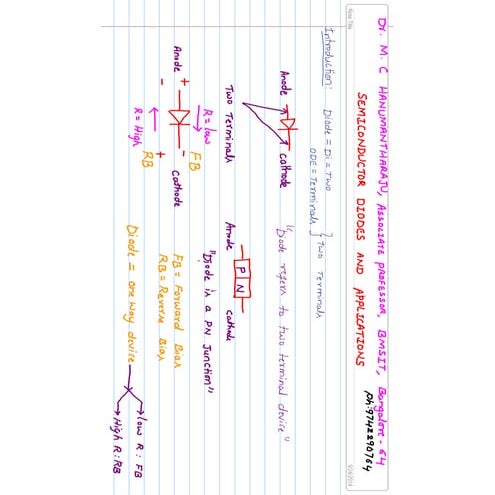 Note Title
9/24/2014
Dr. M. C HANUMANTHARAJU, ASSOCIATE PROFESSOR, BMSIT, Bangalore - 64
SEMICONDUCTOR DIODES AND APPLICATIONS
ph:9742290764
Introduction: Diode = Di = Two
ODE = Terminals
} Two Terminals
Anode cathode "Diode refers to two terminal device"
Two Terminals
Anode P N cathode
"Diode is a PN Junction"
R = low FB
+ -
Anode cathode
- +
R = High RB
FB = Forward Bias
RB = Reverse Bias
Diode = one way device
low R : FB
High R : RB